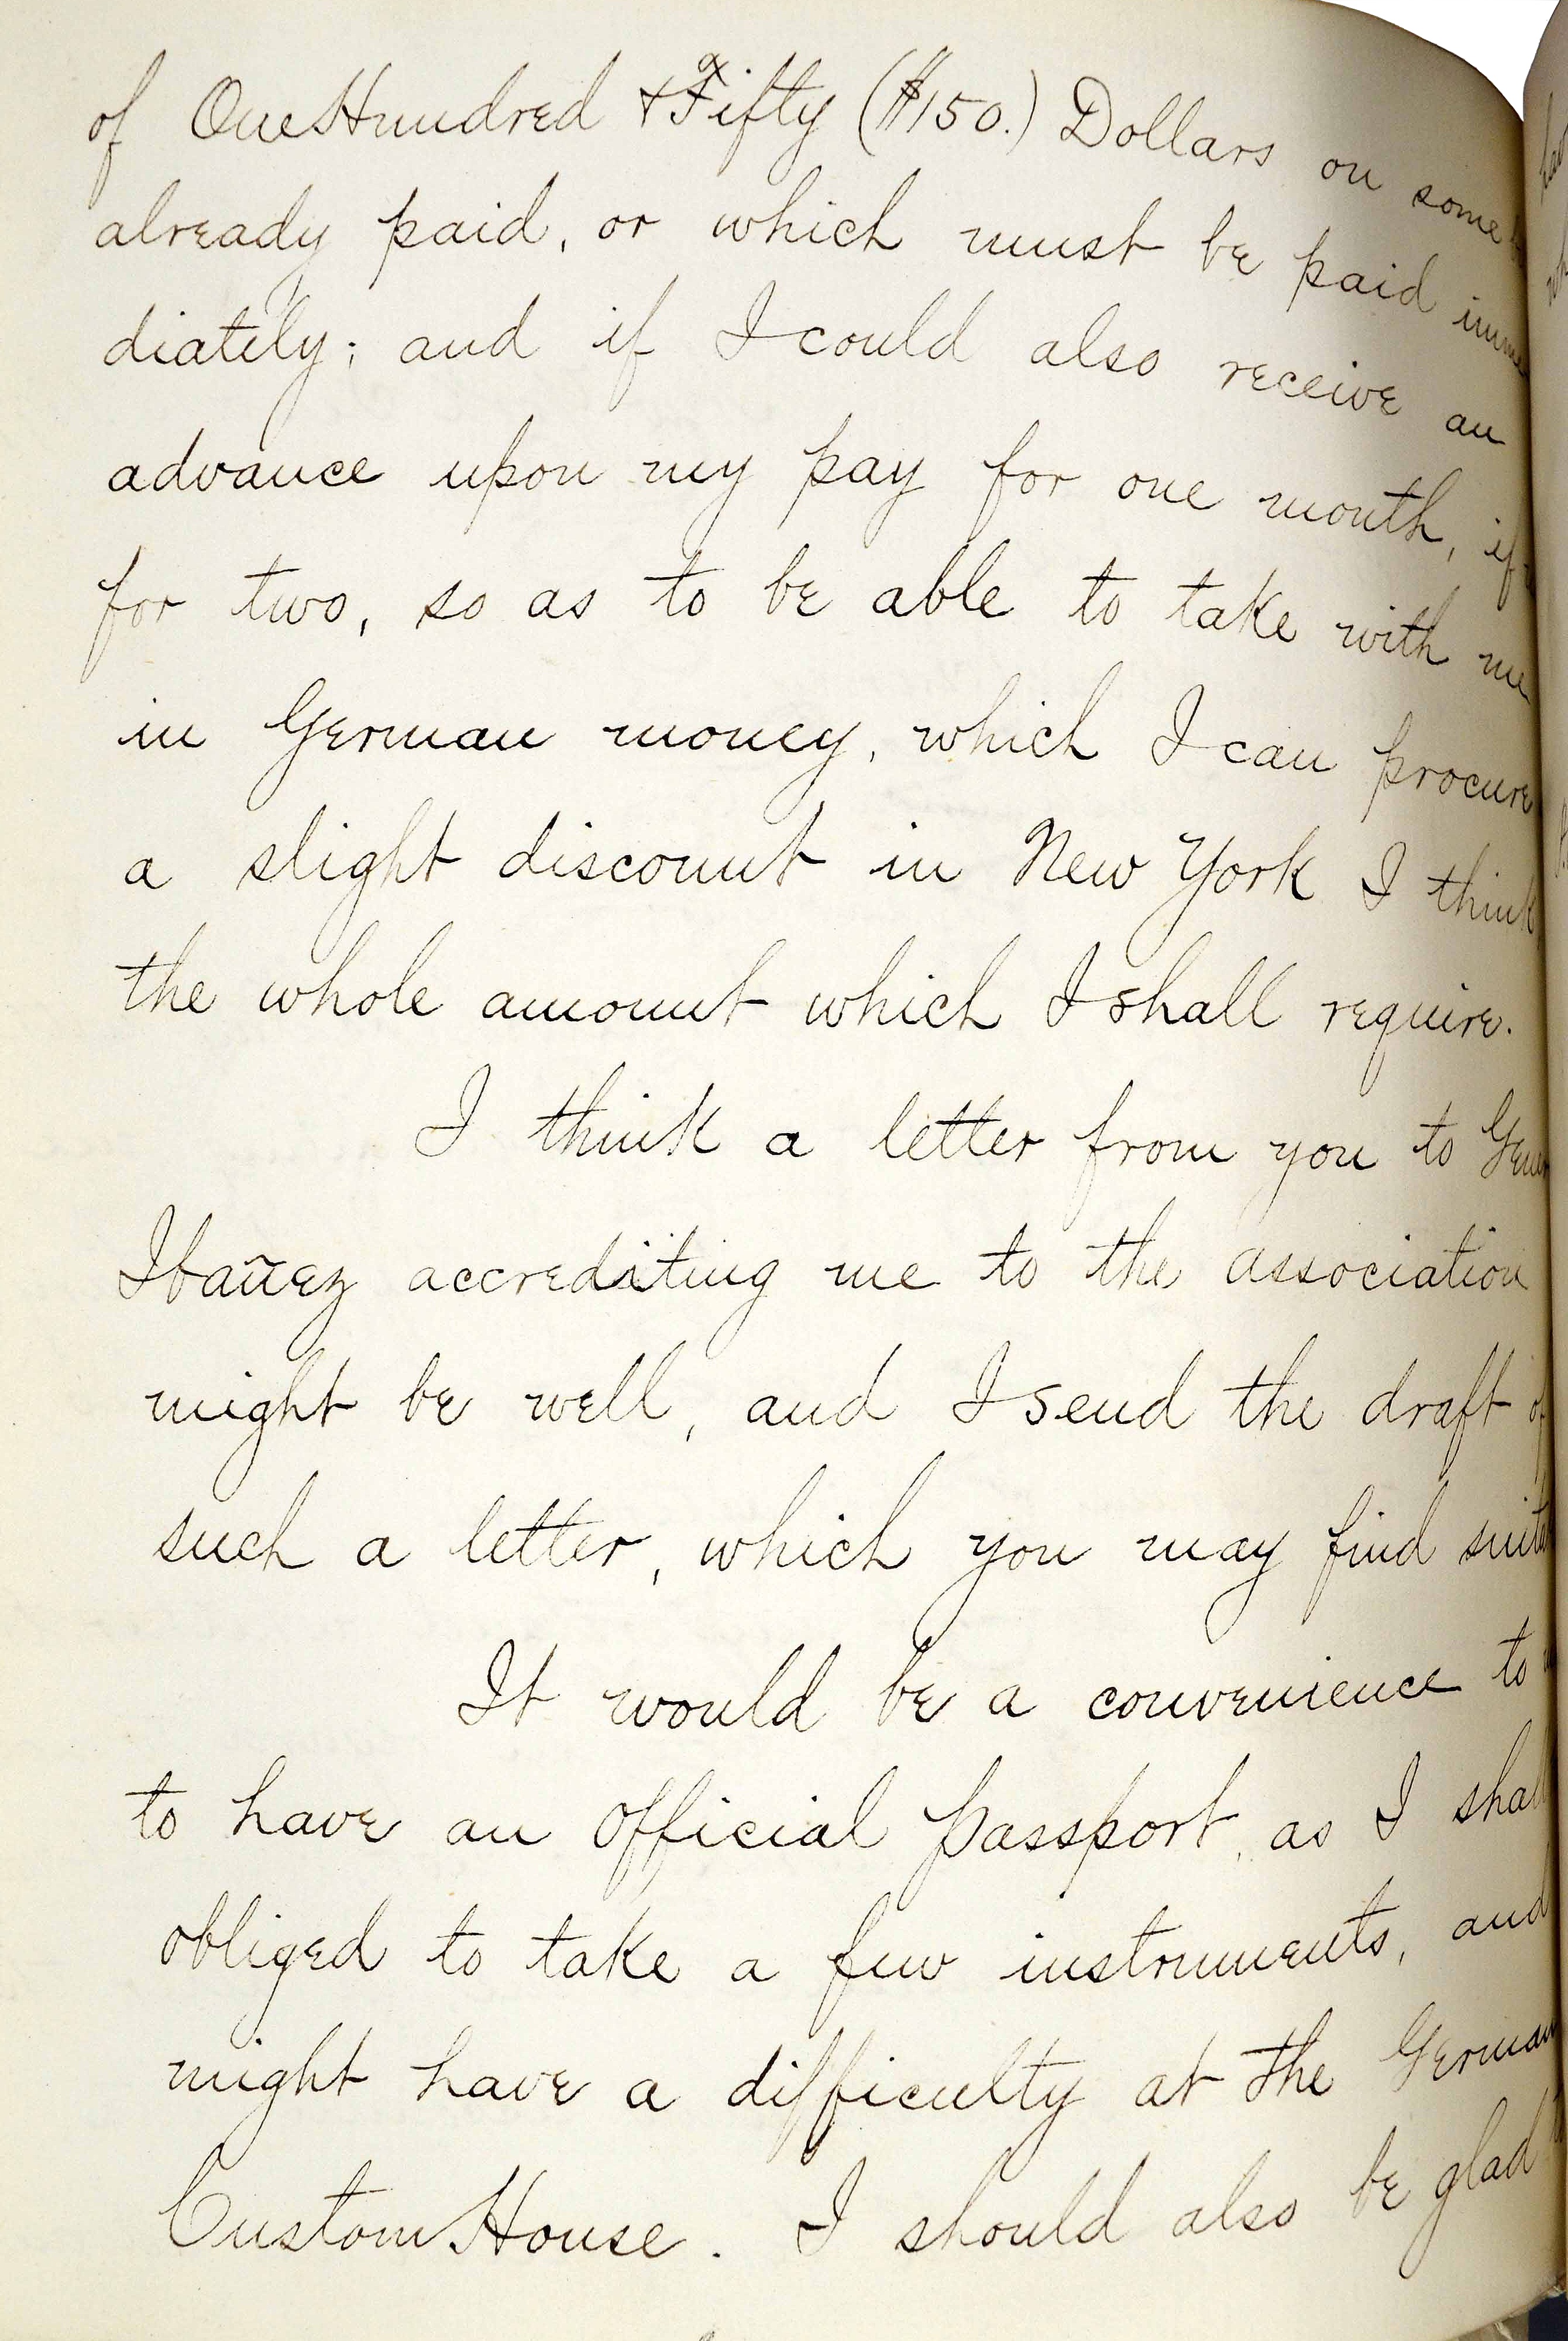 of One Hundred & Fifty ($150.) Dollars on some
already paid, or which must be paid imme
diately; and if I could also receive an
advance upon my pay for one month, if
for two, so as to be able to take with me
in German money, which I can procure
a slight discount in New York I think
the whole amount which I shall require.
I think a letter from you to Gener
Ibañez accrediting me to the association
might be well, and I send the draft of
such a letter, which you may find suita
It would be a convenience to
to have an official passport, as I shall
obliged to take a few instruments, and
might have a difficulty at the German
Custom House. I should also be glad